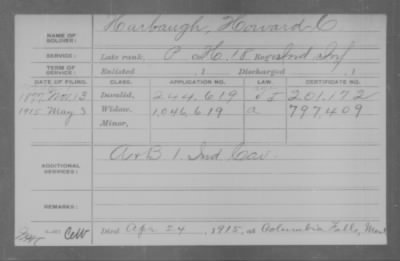 NAME OF SOLDIER: Harbaugh, Howard C
SERVICE: Late rank, P Co H, 18 Reg't Ind Inf
TERM OF SERVICE: Enlisted , 1 Discharged , 1
DATE OF FILING. CLASS. APPLICATION NO. LAW. CERTIFICATE NO.
1877 Nov 13 Invalid, 244.619 201.172
1915 May 3 Widow, 1,046,619 a 797409
Minor,
ADDITIONAL SERVICES: A & B 1 Ind Cav.
REMARKS:
Died Apr 24, 1915, at Columbia Falls, Mont